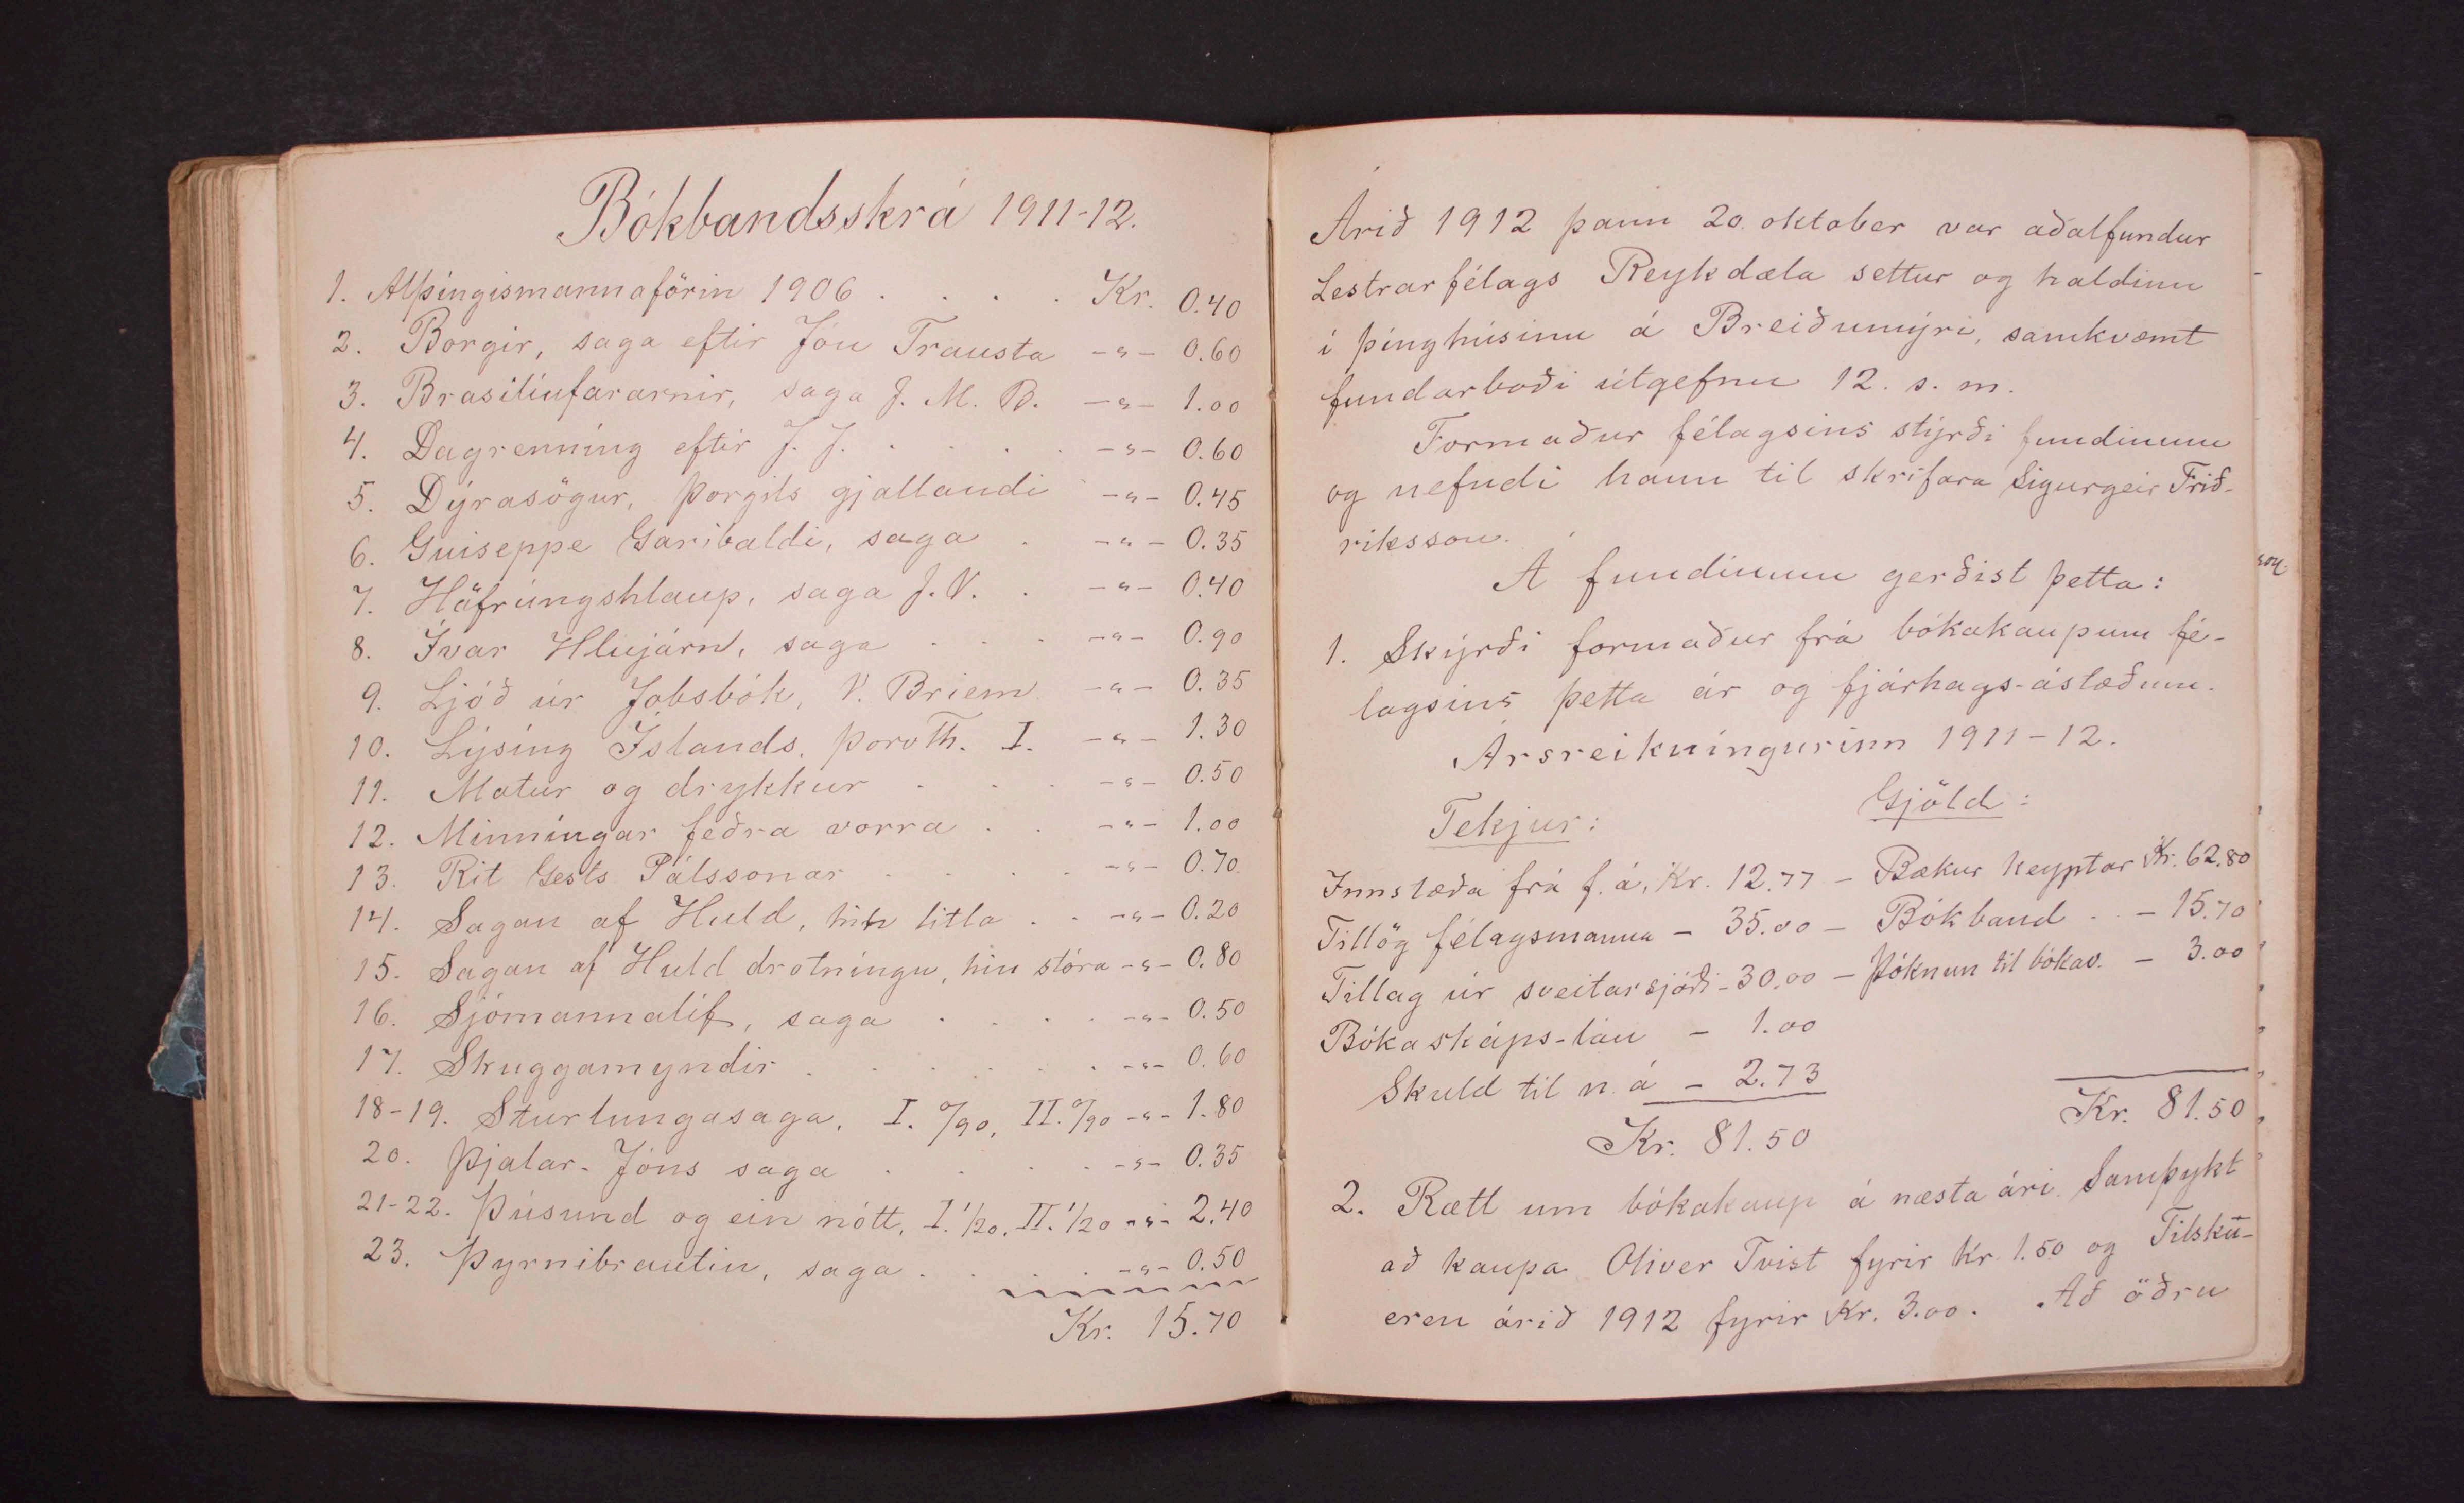 Bókbandsskrá 1911-12.
1. Alþingismannaförin 1906 . . . . Kr. 0.40
2. Borgir, saga eftir Jón Trausta -"- 0.60
3. Brasilíufararnir, saga J. M. B. -"- 1.00
4. Dagrenning eftir J. J. . . . . -"- 0.60
5. Dýrasögur, Þorgils gjallandi -"- 0.45
6. Guiseppe Garibaldi, saga . -"- 0.35
7. Höfrungshlaup, saga J. V. . -"- 0.40
8. Ívar Hlújárn, saga . . . -"- 0.90
9. Ljóð úr Jobsbók, V. Briem -"- 0.35
10. Lýsing Íslands, Þorv Th. I. -"- 1.30
11. Matur og drykkur . . . -"- 0.50
12. Minningar feðra vorra . . -"- 1.00
13. Rit Gests Pálssonar . . . . -"- 0.70
14. Sagan af Huld, hin litla . . -"- 0.20
15. Sagan af Huld drotningu, hin stóra -"- 0.80
16. Sjómannalíf, saga . . . . -"- 0.50
17. Skuggamyndir . . . . . . -"- 0.60
18-19. Sturlungasaga, I. 0/90, II. 0/90 -"- 1.80
20. Þjalar-Jóns saga . . . . -"- 0.35
21-22. Þúsund og ein nótt, I. 1/20, II. 1/20 -"- 2.40
23. Þyrnibrautin, saga . . . . -"- 0.50
Kr. 15.70
Árið 1912 þann 20. oktober var aðalfundur
Lestrarfélags Reykdæla settur og haldinn
í þinghúsinu á Breiðumýri, samkvæmt
fundarboði útgefnu 12. s. m.
Formaður félagsins stýrði fundinum
og nefndi hann til skrifara Sigurgeir Frið-
riksson.
Á fundinum gerðist þetta:
1. Skýrði formaður frá bókakaupum fé-
lagsins þetta ár og fjárhags-ástæðum.
Ársreikningurinn 1911-12.
Tekjur: Gjöld:
Innstæða frá f. á. Kr. 12.77 - Bækur keyptar Kr. 62.80
Tillög félagsmanna - 35.00 - Bókband . . - 15.70
Tillag úr sveitarsjóði - 30.00 - Þóknun til bókav. - 3.00
Bókaskáps-lán - 1.00
Skuld til n. á - 2.73
Kr. 81.50 Kr. 81.50
2. Rætt um bókakaup á næsta ári. Samþykt
að kaupa Oliver Tvist fyrir Kr. 1.50 og Tilsku-
eren árið 1912 fyrir Kr. 3.00. Að öðru